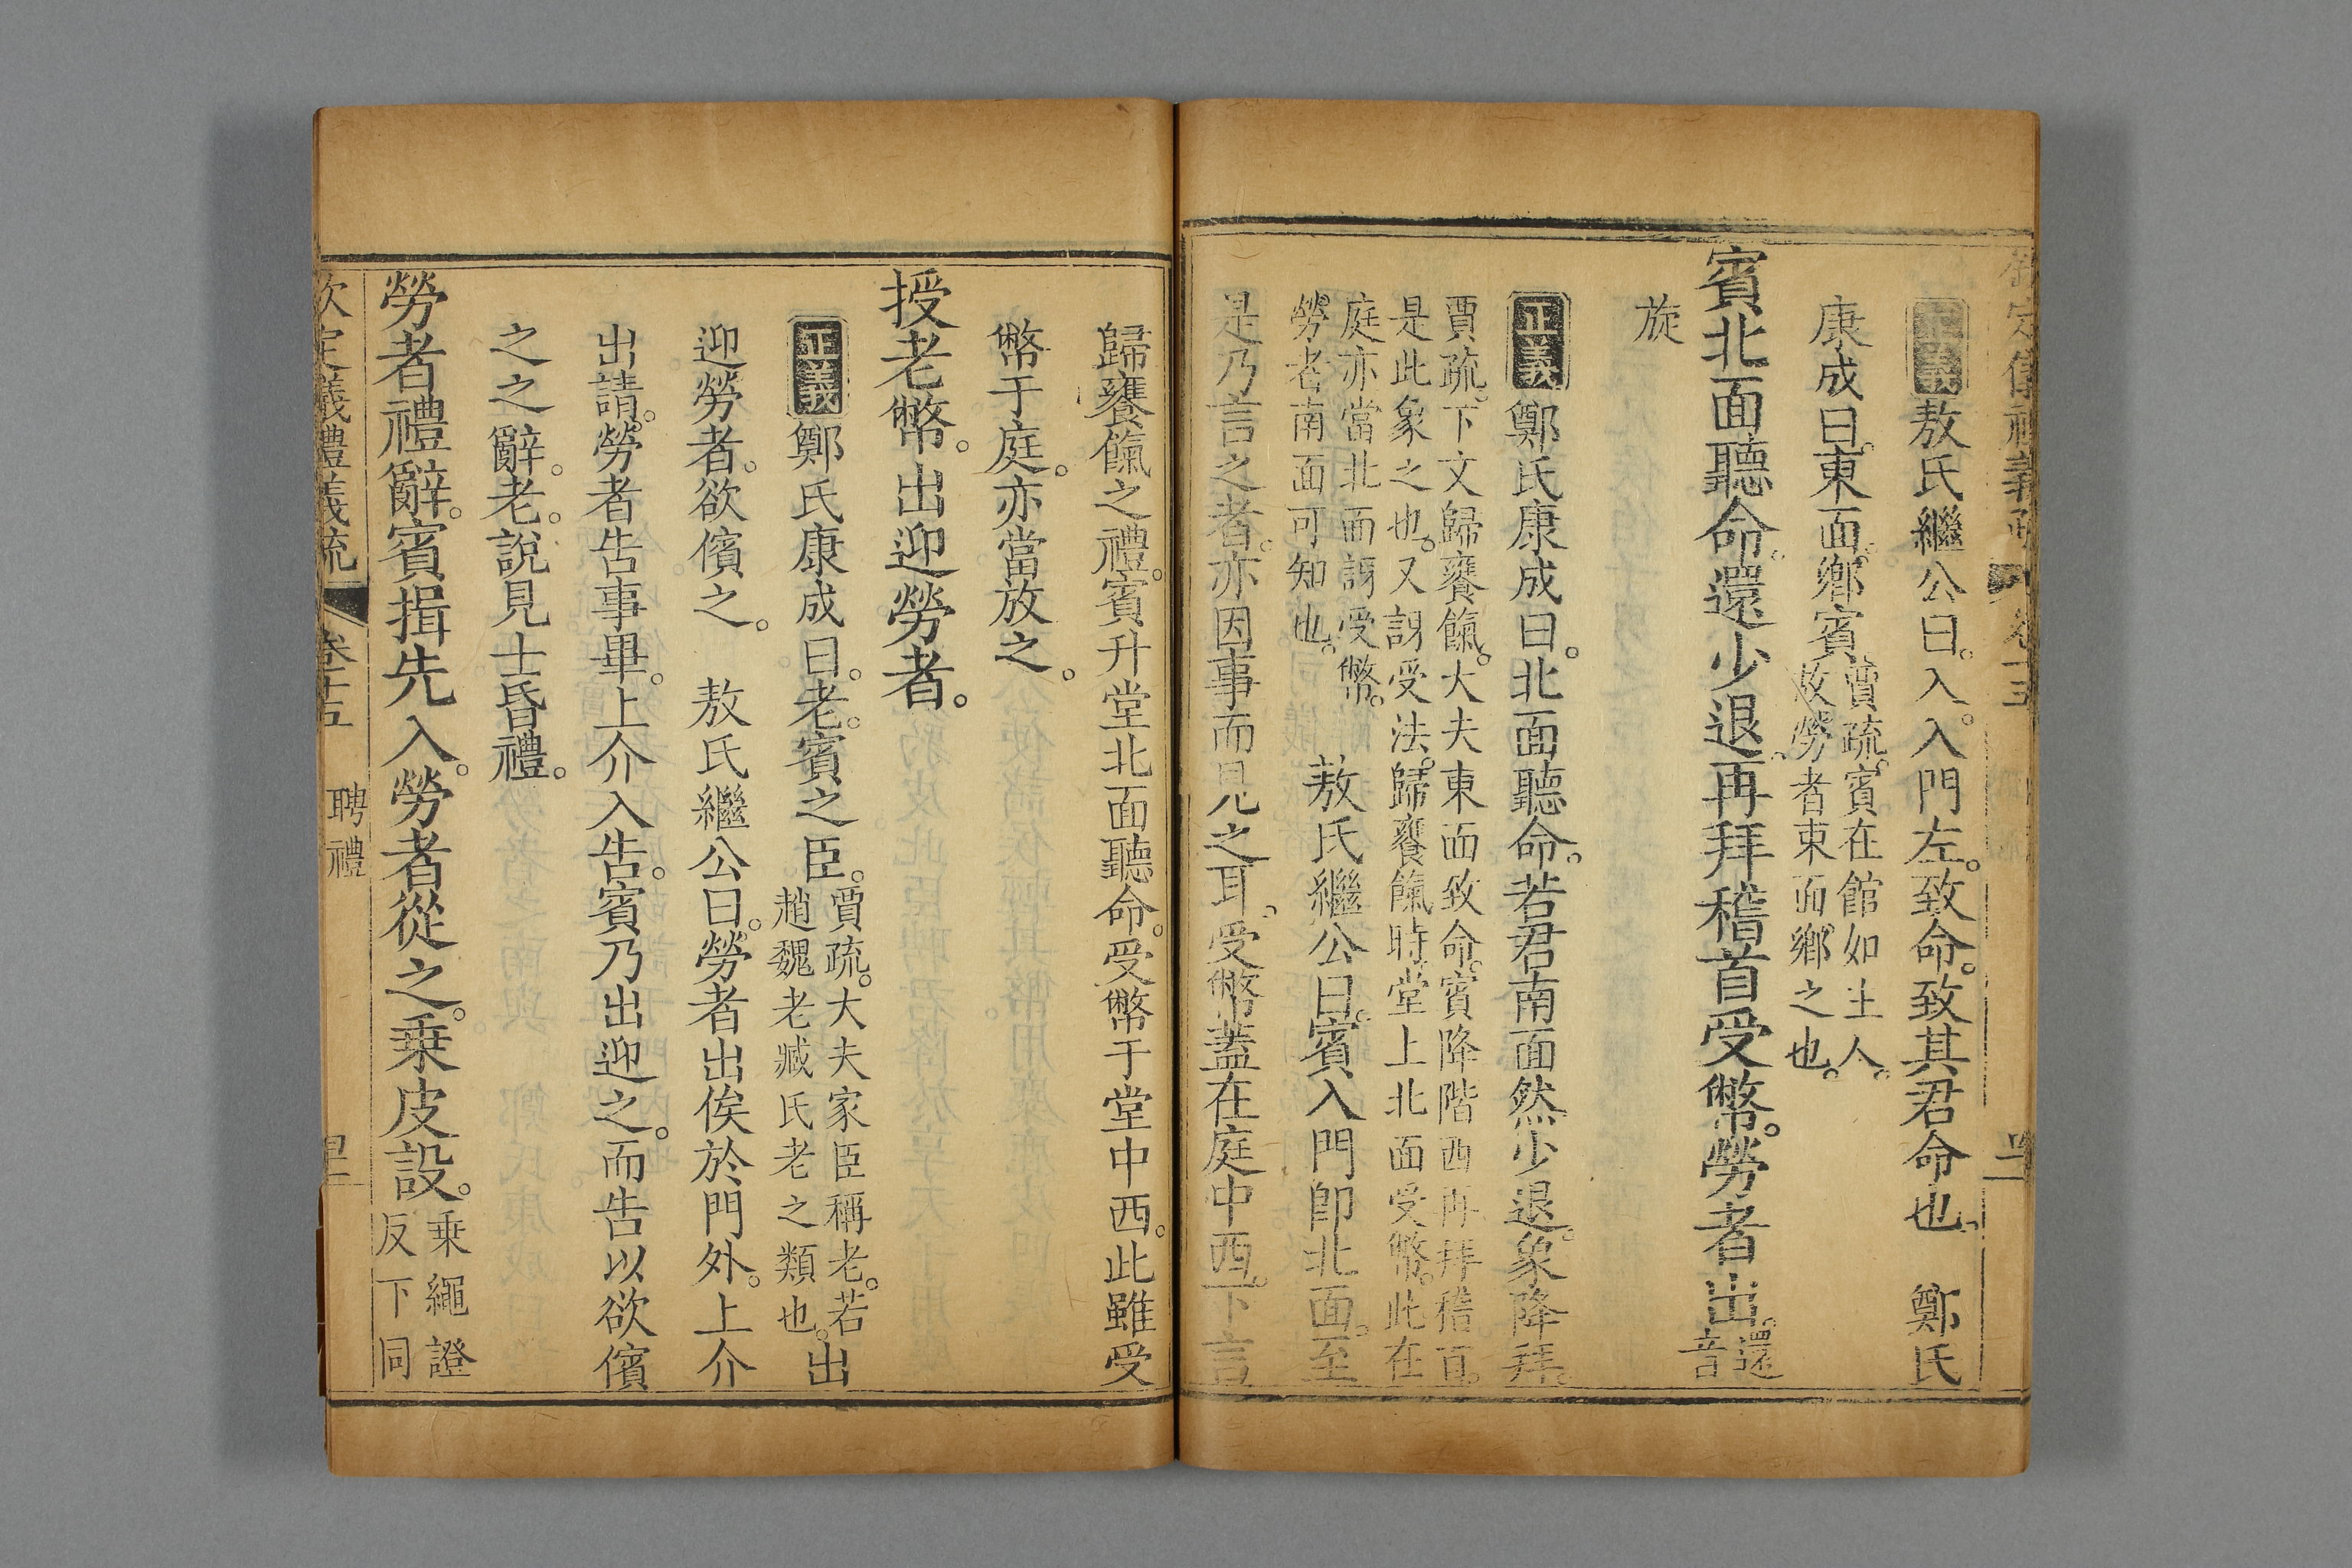 欽定儀禮義疏 卷十五
正義 敖氏繼公曰。入。入門左。致命。致其君命也 鄭氏
康成曰。東面。鄉賓。
賈疏。賓在館如主人。
故勞者東面鄉之也。
賓北面聽命。還少退。再拜稽首受幣。勞者出。
還音
旋
正義 鄭氏康成曰。北面聽命。若君南面然少退。象降拜。
賈疏。下文歸饔餼。大夫東面致命。賓降階西再拜稽首。
是此象之也。又訝受法。歸饔餼時。堂上北面受幣。此在
庭亦當北面訝受幣。
勞老南面可知也。
敖氏繼公曰。賓入門卽北面。至
是乃言之者。亦因事而見之耳。受幣蓋在庭中西。下言
歸饔餼之禮。賓升堂北面聽命。受幣于堂中西。此雖受
幣于庭。亦當放之。
授老幣。出迎勞者。
正義 鄭氏康成曰。老。賓之臣。
賈疏。大夫家臣稱老。若
趙魏老臧氏老之類也。
出
迎勞者。欲儐之。 敖氏繼公曰。勞者出俟於門外。上介
出請。勞者告事畢。上介入告。賓乃出迎之。而告以欲儐
之之辭。老。說見士昏禮。
勞者禮辭。賓揖先入。勞者從之。乗皮設。
乗繩證
反下同
欽定儀禮義疏 卷十五 聘禮